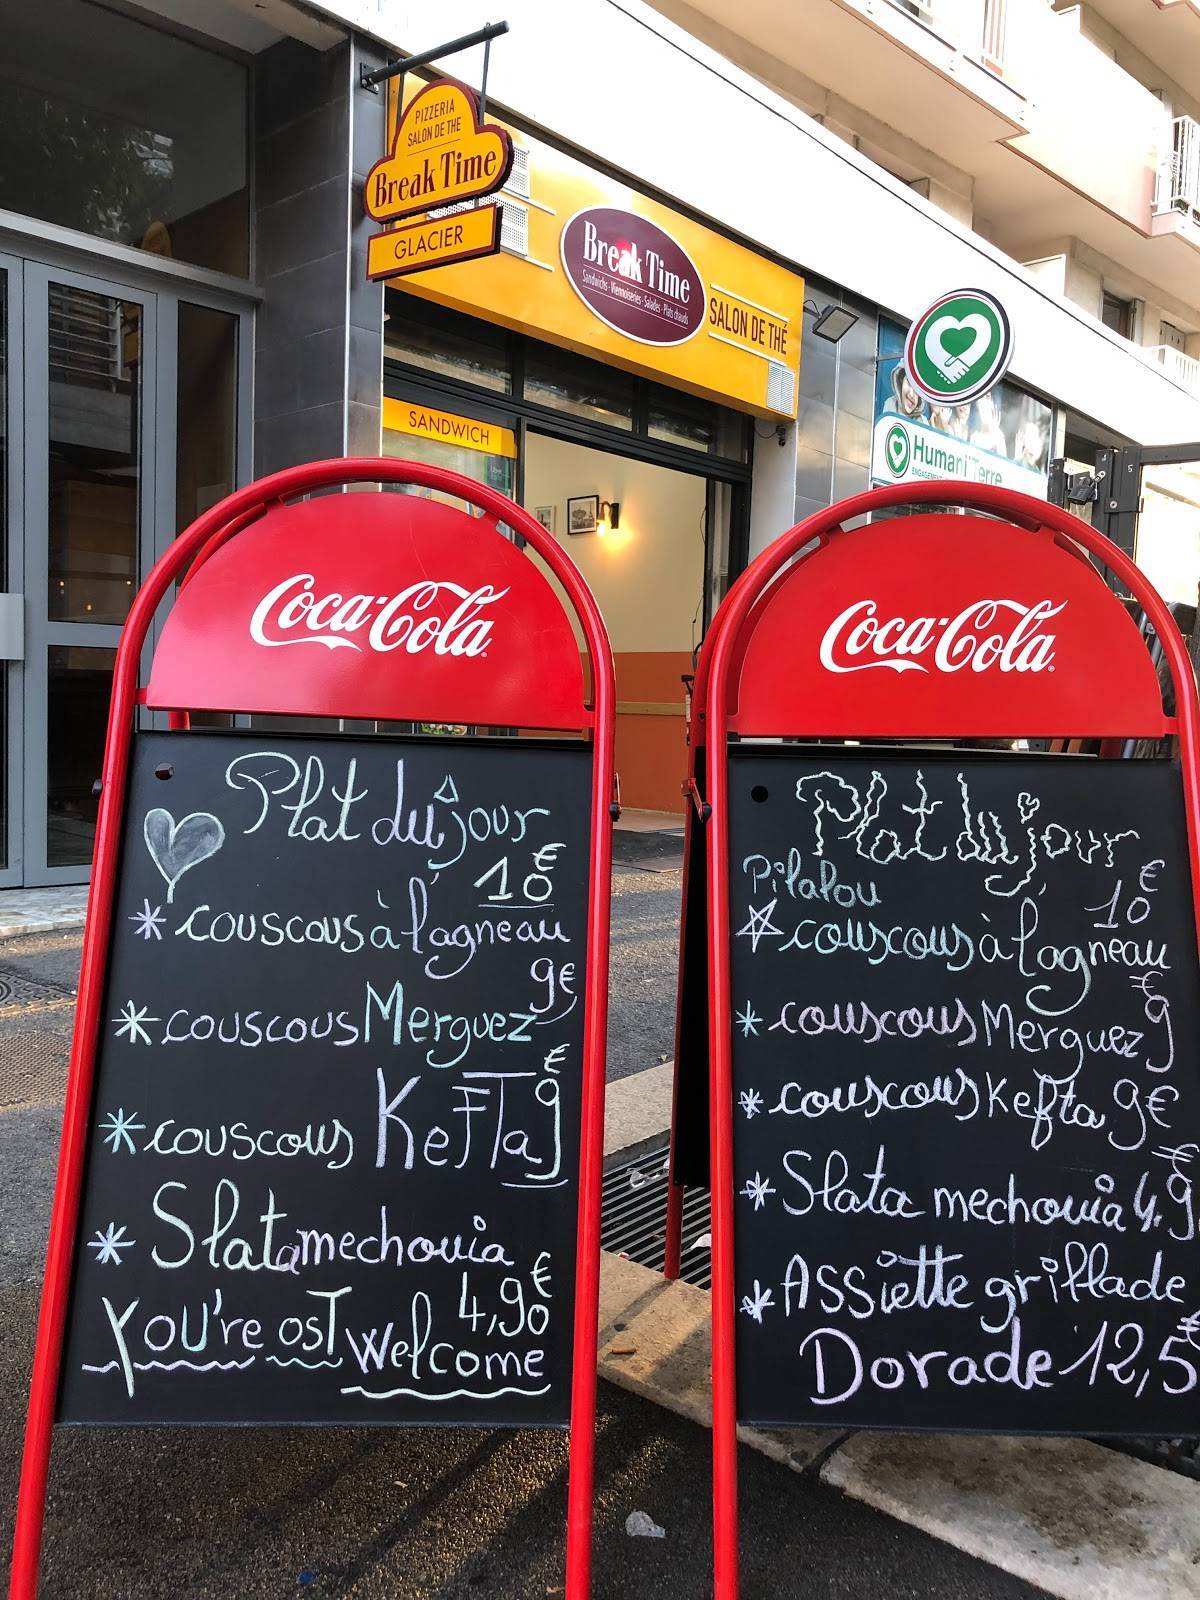 PIZZERIA
SALON DE THE
Break Time
GLACIER
Break Time
Sandwichs - Viennoiseries - Salades - Plats chauds
SALON DE THÉ
SANDWICH
Humani'Terre
Coca-Cola
Plat du jour
10€
* couscous à l'agneau
9€
* couscous Merguez
€
* couscous Kefta 9
* Slata mechouia
4,90€
You're osT Welcome
Coca-Cola
Plat du jour
Pilalou
10€
couscous à l'agneau
€
* couscous Merguez 9
* couscous Kefta 9€
* Slata mechouia 4,9€
* ASSiette grillade
Dorade 12,5€